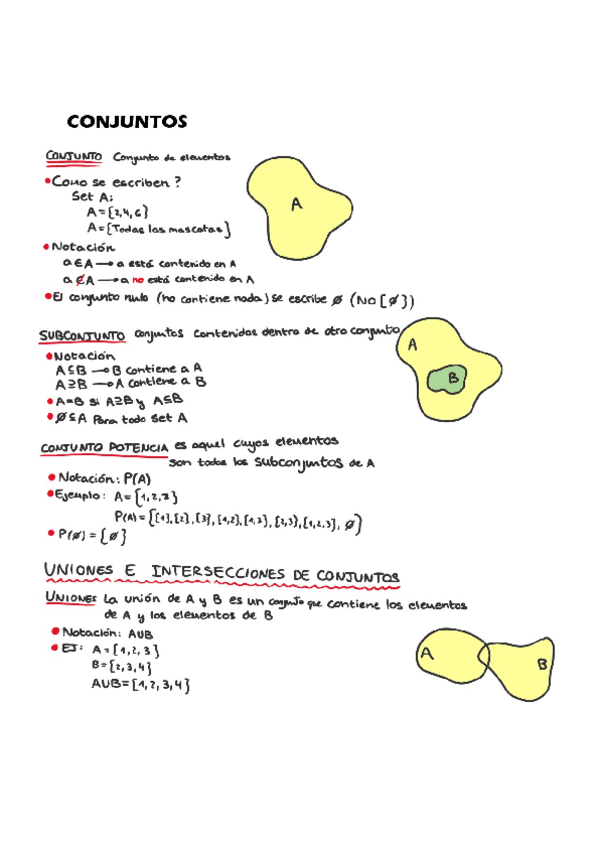 CONJUNTOS
CONJUNTO Conjunto de elementos
A
• Como se escriben?
Set A:
A={2,4,6}
A={Todas las mascotas}
• Notación
a∈A → a está contenido en A
a∉A → a no está contenido en A
• El conjunto nulo (no contiene nada) se escribe ø (No {ø})
SUBCONJUNTO conjuntos contenidos dentro de otro conjunto
A
B
• Notación
A⊆B → B contiene a A
A⊇B → A contiene a B
• A=B si A⊇B y A⊆B
• ø⊆A Para todo set A
CONJUNTO POTENCIA es aquel cuyos elementos
son todos los subconjuntos de A
• Notación: P(A)
• Ejemplo: A={1,2,3}
P(A)={{1},{2},{3},{1,2},{1,3},{2,3},{1,2,3},ø}
• P(ø)={ø}
UNIONES E INTERSECCIONES DE CONJUNTOS
UNIONES La unión de A y B es un conjunto que contiene los elementos
de A y los elementos de B
• Notación: A∪B
• EJ: A={1,2,3}
B={2,3,4}
A∪B={1,2,3,4}
A
B